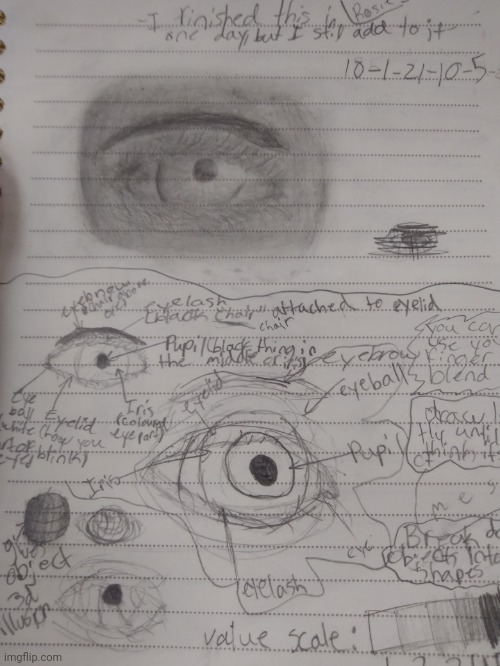 -I finished this in
one day, but I still add to it
Rosie
10-1-21-10-5-
eyebrow
eyelash
(black "hair" attached to eyelid
hair
Pupil (black thing in
the middle of
eyebrow
eyeball
You can
use yo
finger
blend
Eye
ball
white
Eyelid
(how you
blink)
Iris
(coloured
eye part)
eyelid
Pupil
Iris
Draw l
tly until
think it
m e s
Break do
objects into
shapes
eye
eyelash
gives
object
3d
illusion
value scale:
imgflip.com